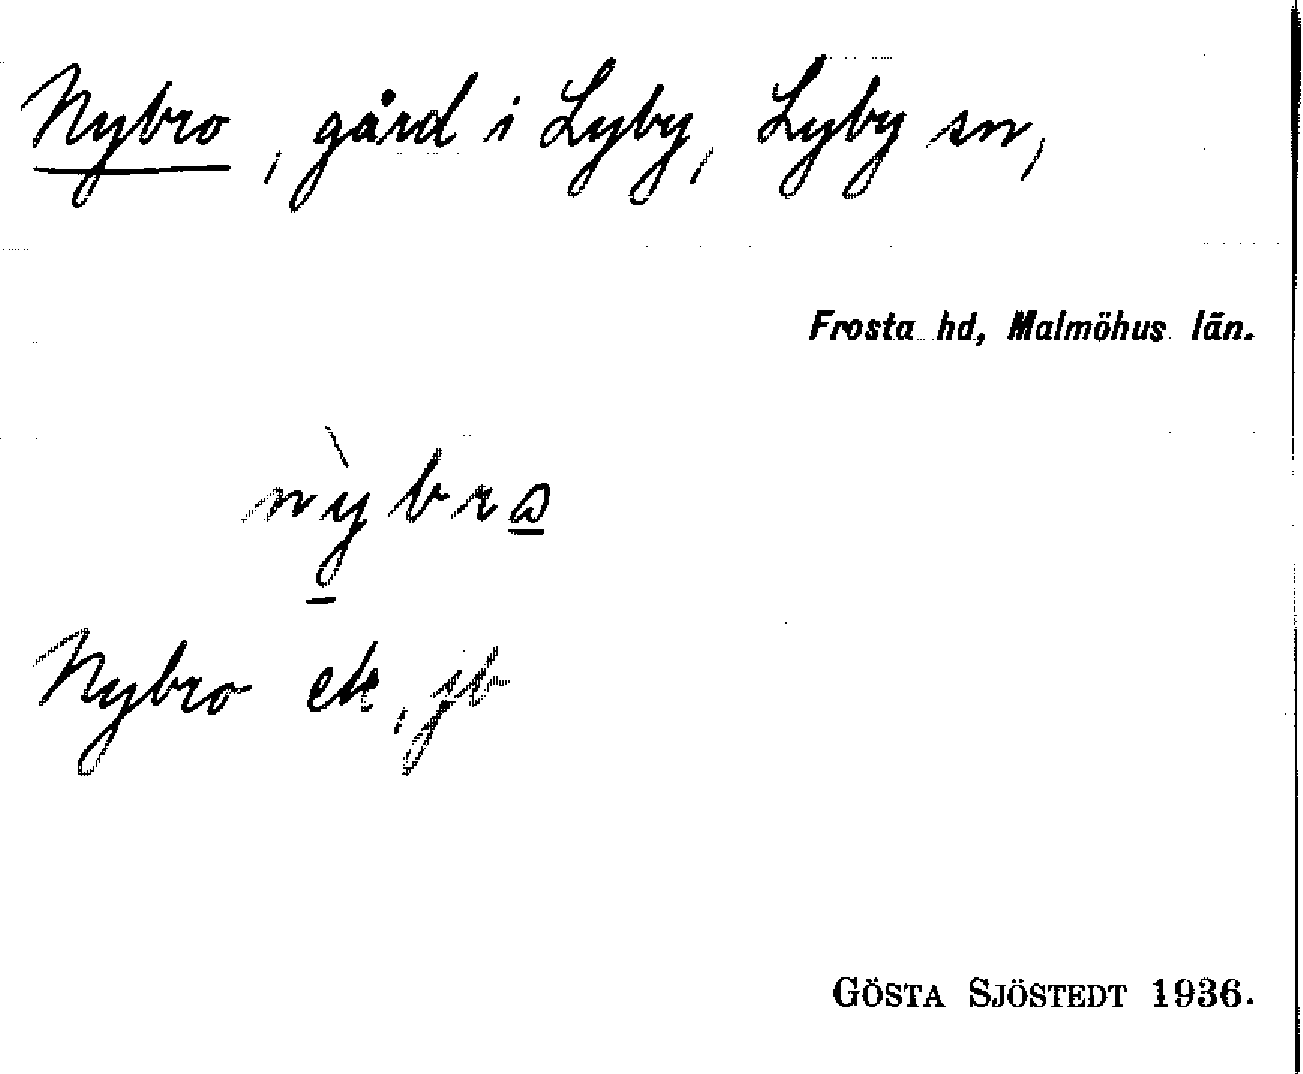 Nybro, gård i Lyby, Lyby sn,
Frosta hd, Malmöhus län.
Nybro ek, jb
GÖSTA SJÖSTEDT 1936.